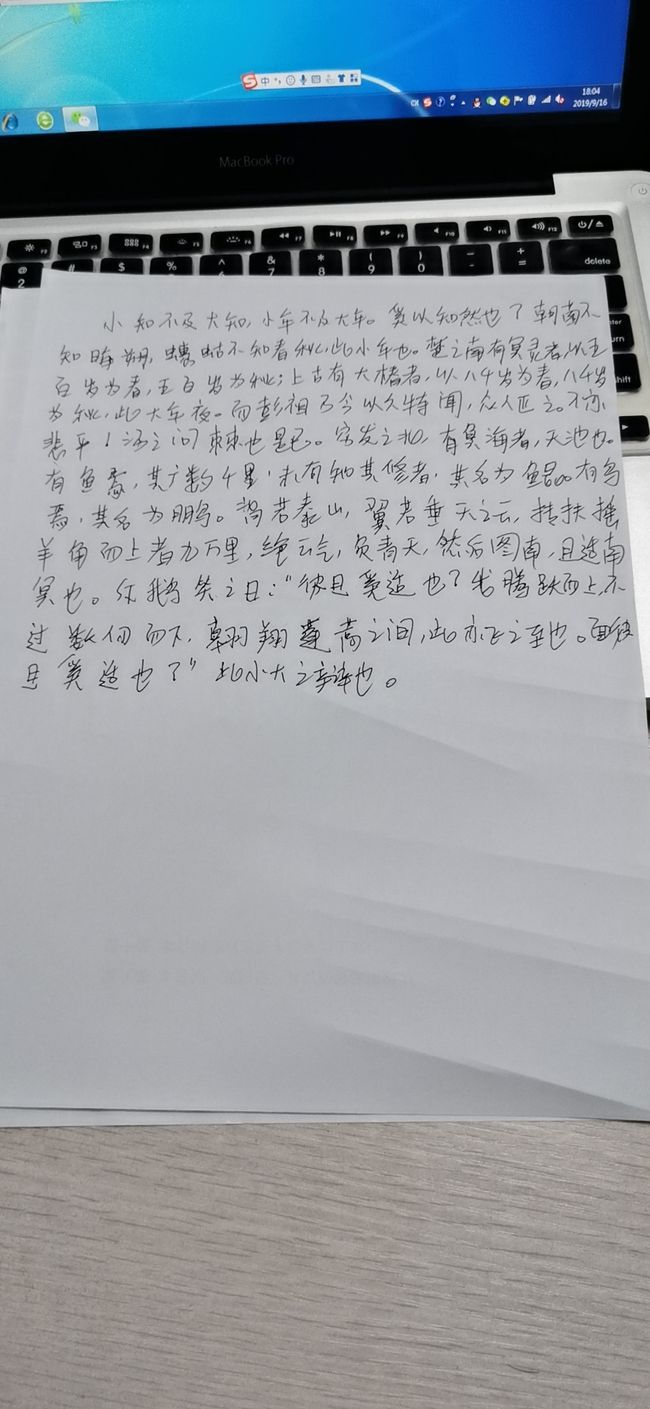 中
CH
18:04
2019/9/16
MacBook Pro
F3
F4
F5
F6
F7
F8
F9
F10
F11
F12
@
2
#
$
%
^
&
7
*
8
(
9
)
0
-
+
=
delete
小知不及大知,小年不及大年。奚以知然也?朝菌不
知晦朔,蟪蛄不知春秋,此小年也。楚之南有冥灵者,以五
百岁为春,五百岁为秋;上古有大椿者,以八千岁为春,八千岁
为秋,此大年夜。而彭祖乃今以久特闻,众人匹之。不亦
悲乎!汤之问棘也是已。穷发之北,有冥海者,天池也。
有鱼焉,其广数千里,未有知其修者,其名为鲲。有鸟
焉,其名为鹏。背若泰山,翼若垂天之云,抟扶摇
羊角而上者九万里,绝云气,负青天,然后图南,且适南
冥也。斥鴳笑之曰:“彼且奚适也?我腾跃而上,不
过数仞而下,翱翔蓬蒿之间,此亦飞之至也。而彼
且奚适也?”此小大之辩也。